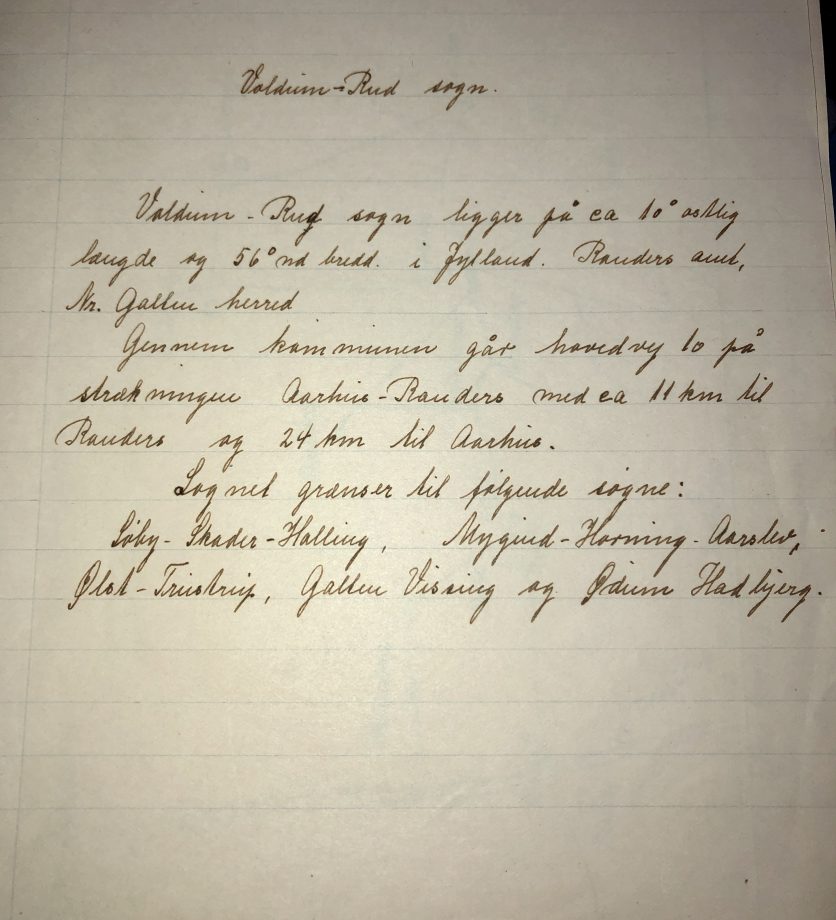 Voldum-Rud sogn.
Voldum - Rud sogn ligger på ca 10° østlig
længde og 56° nd bredd. i Jylland. Randers amt,
Nr. Galten herred
Gennem kommunen går hovedvej 10 på
strækningen Aarhus-Randers med ca 11 km til
Randers og 24 km til Aarhus.
Sognet grænser til følgende sogne:
Søby-Skader-Halling, Mygind-Horning-Aarslev,
Ølst-Trustrup, Galten Vissing og Ødum Hadbjerg.